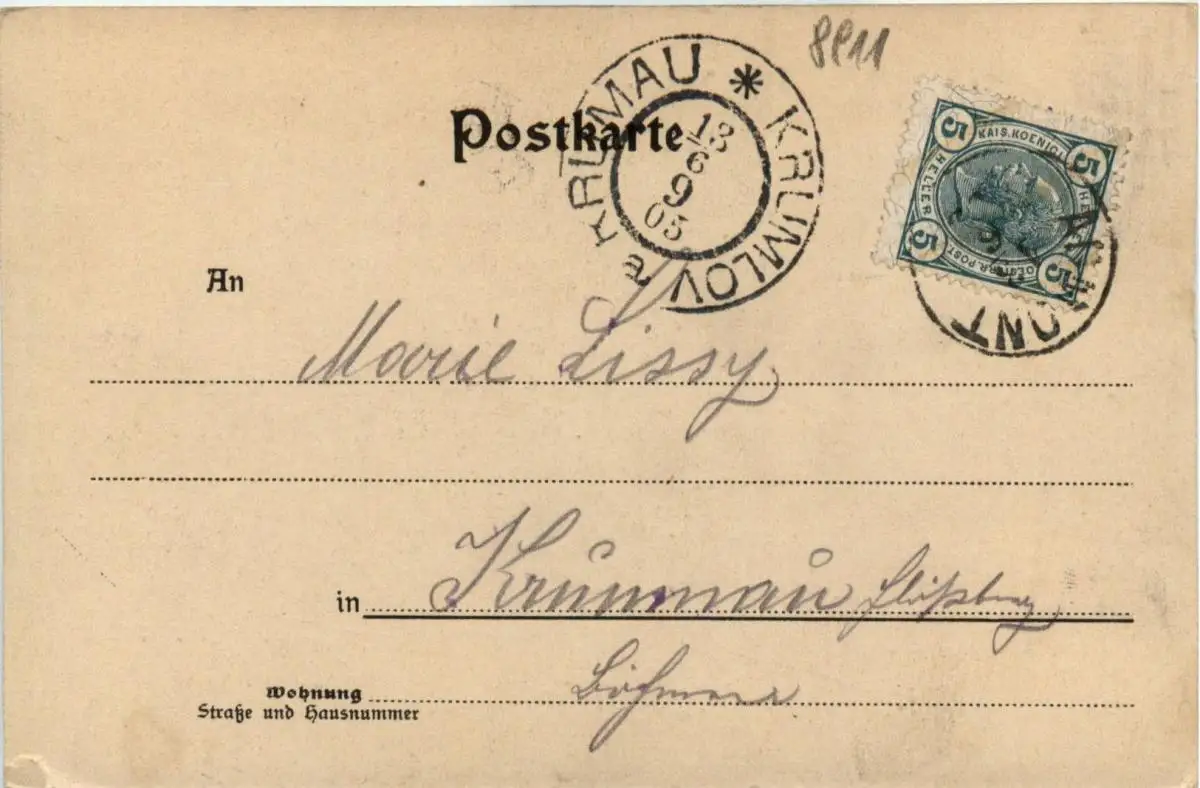 8811
Postkarte
KRUMMAU * KRUMLOV a
13
6
9
05
5 KAIS. KOENIGL. 5
HELLER
5 OESTERR. POST 5
MONT
An
Marie Lissy
in Krummau
Böhmen
Wohnung
Straße und Hausnummer